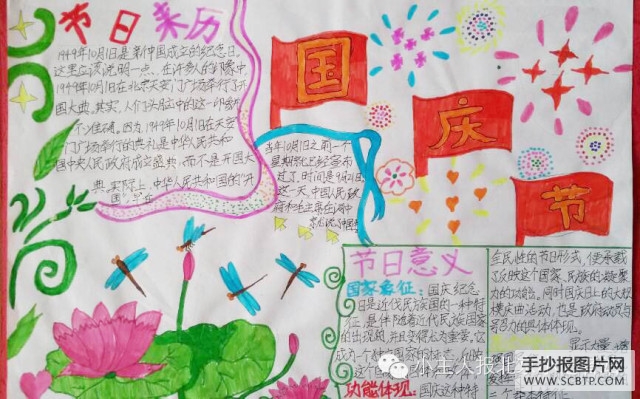 节日来历
1949年10月1日是新中国成立的纪念日,
这里应该说明一点,在许多人的印象中,
1949年10月1日在北京天安门广场举行了开
国大典,其实,人们头脑中的这一印象并
不准确,因为1949年10月1日在天安
门广场举行的典礼是中华人民共和
国中央人民政府成立盛典,而不是开国大
典,实际上,中华人民共和国的"开
国"早在
当年10月1日之前一个
星期就已经宣布
过了,时间是9月21日
这一天,中国人民政
府
国
庆
节
节日意义
国家象征:国庆纪念
日是近代民族国的一种特
征,是伴随着近代民族国家
的出现的,并且变得尤为重要,它
成为一个
功能体现:国庆这种特
全民性的节日形式,便承载
了反映这个国家、民族的凝聚
力的功能,同时国庆日上的大规
模庆典活动,也是政府动员与
号召力的具体体现。
发挥
三个基本特征
小主人报北
手抄报图片网
WWW.SCBTP.COM